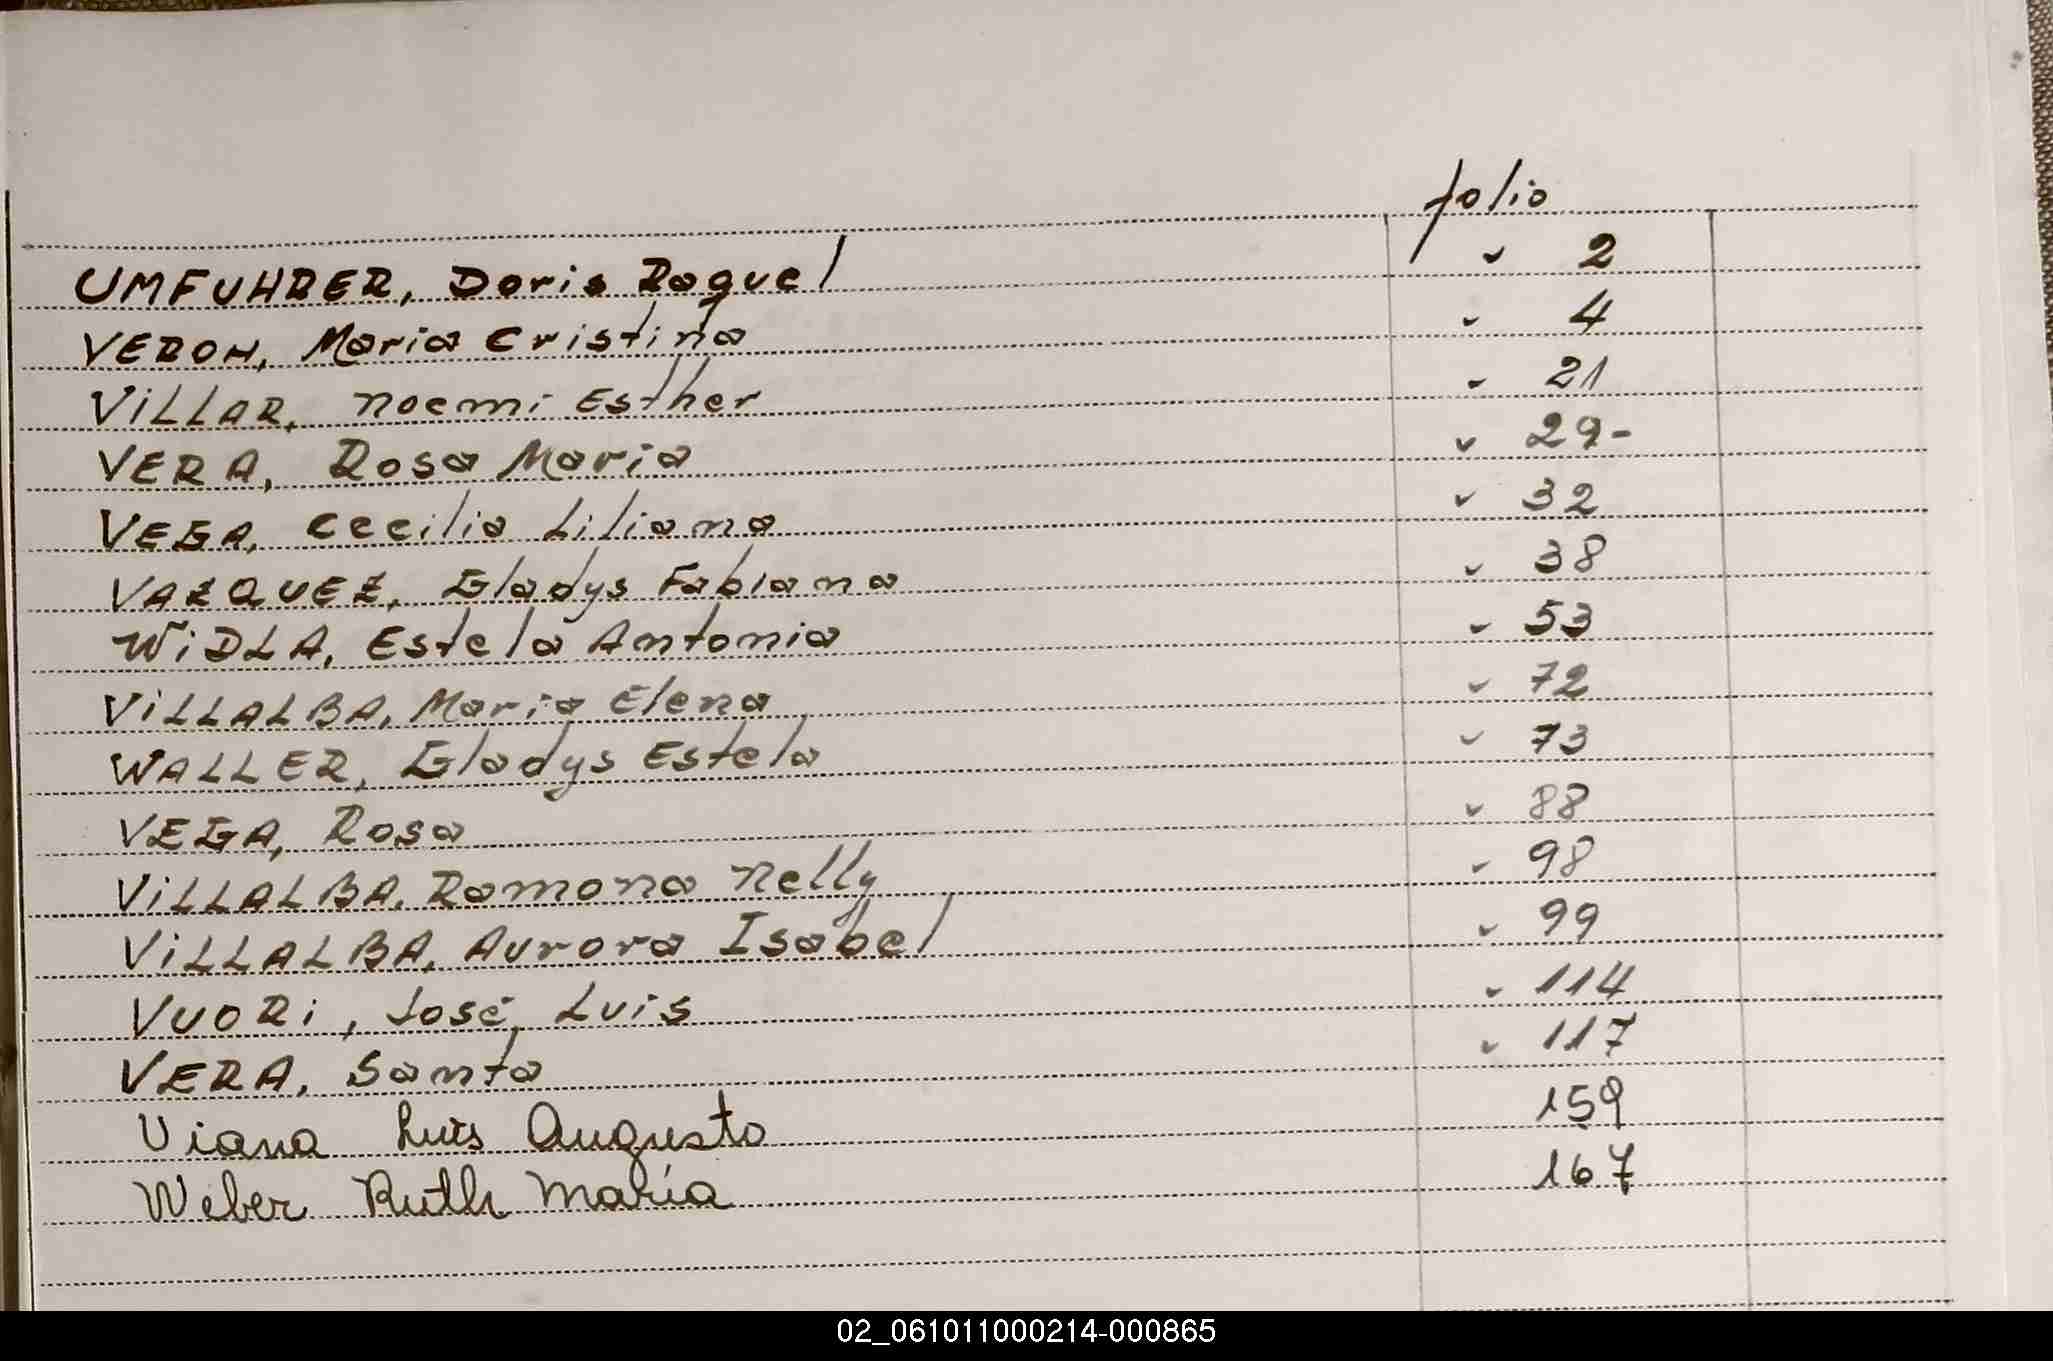 folio
UMFUHRER, Doris Raquel ✓ 2
VERON, Maria Cristina ✓ 4
ViLLAR, noemi Esther ✓ 21
VERA, Rosa Maria ✓ 29-
VEGA, Cecilia Liliana ✓ 32
VAZQUEZ, Gladys Fabiana ✓ 38
WiDLA, Estela Antonia ✓ 53
ViLLALBA, Maria Elena ✓ 72
WALLER, Gladys Estela ✓ 73
VEGA, Rosa ✓ 88
ViLLALBA, Ramona Nelly ✓ 98
ViLLALBA, Aurora Isabel ✓ 99
VUORi, José Luis ✓ 114
VERA, Santa ✓ 117
Viana Luis Augusto 159
Weber Ruth María 167
02_061011000214-000865